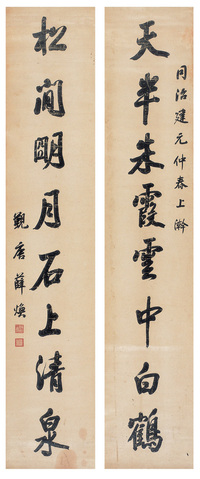 同治建元仲春上澣
天半朱霞雲中白鶴
松間明月石上清泉
覲唐薛煥